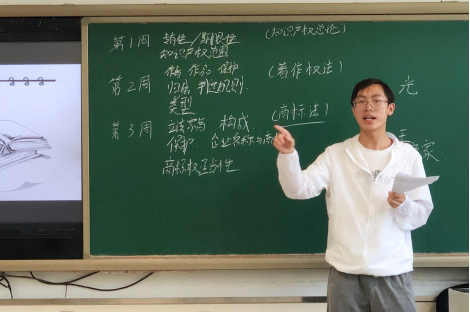 第1周 专有性/期限性 (知识产权总论)
知识产权范围
第2周 作品 保护 (著作权法)
归属 判定规则
类型
第3周 构成 (商标法)
保护. 企业名称与商
商标权
光
家